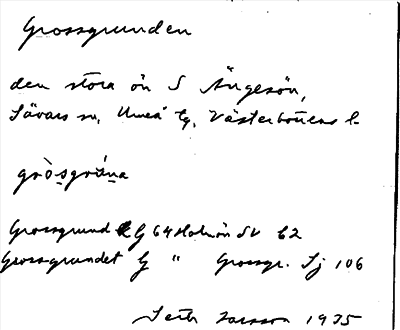 Grossgrunden
den stora ön S Ängesön,
Sävars sn, Umeå tg, Västerbottens l.
gròsgrúna
Grossgrund G 64 Holmön SV b2
Grossgrundet G " Grossgr. Sj 106
Seth Larsson 1935